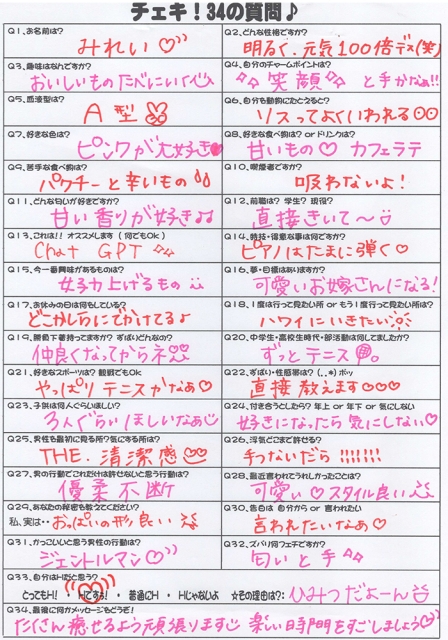 チェキ!34の質問♪
Q1、お名前は? Q2、どんな性格ですか?
みれい♡ 明るく、元気100倍デス(笑)
Q3、趣味はなんですか? Q4、自分のチャームポイントは?
おいしいものたべにいく 笑顔 と手かなぁ!!
Q5、血液型は? Q6、自分を動物にたとえると?
A型 リスってよくいわれる
Q7、好きな色は? Q8、好きな食べ物は? or ドリンクは?
ピンクが大好き 甘いもの♡ カフェラテ
Q9、苦手な食べ物は? Q10、喫煙者ですか?
パクチーと辛いもの 吸わないよ!
Q11、どんな匂いが好きですか? Q12、前職は? 学生? 現役?
甘い香りが好き♪♪ 直接きいて〜
Q13、これは!! オススメします (何でもOK) Q14、特技・得意な事は何ですか?
Chat GPT ☆☆ ピアノはたまに弾く♡
Q15、今一番興味があるものは? Q16、夢・目標はありますか?
女子力上げるもの 可愛いお嫁さんになる!
Q17、お休みの日は何をしている? Q18、1度は行って見たい所 or もう1度行って見たい所は?
どこかしらにでかけてるよ ハワイにいきたい
Q19、勝負下着持ってますか? ずばりどんなの? Q20、中学生・高校生時代・部活動は何してましたか?
仲良くなってからネ♡♡ ずっとテニス
Q21、好きなスポーツは? 観戦でもOK Q22、ずばり・性感帯は? (, . *) ポッ
やっぱりテニスかなぁ♡ 直接教えます♡♡♡
Q23、子供は何人ぐらいほしい? Q24、付き合うとしたら? 年上 or 年下 or 気にしない
3人ぐらいほしいなぁ 好きになったら気にしない♡
Q25、男性を最初に見る所?気にする所は? Q26、浮気どこまで許せる?
THE.清潔感 手つないだら!!!!!!!
Q27、男の行動でこれだけは許せないと思う行動は? Q28、最近言われてうれしかったことは?
優柔不断 可愛い♡スタイル良い
Q29、あなたの秘密を教えてください? Q30、告白は 自分から or 言われたい
私、実は・・おっぱいの形良い 言われたいなぁ♡
Q31、かっこいいと思う男性の行動は? Q32、ズバリ何フェチですか?
ジェントルマン♡ 匂いと手
Q33、自分はHだと思う?
とってもH! ・ Hですぅ! ・ 普通にH ・ Hじゃないよ ★その理由は?: ひみつだよーん
Q34、最後に何かメッセージをどうぞ!
たくさん癒せるよう頑張ります 楽しい時間をすごしましょう♡